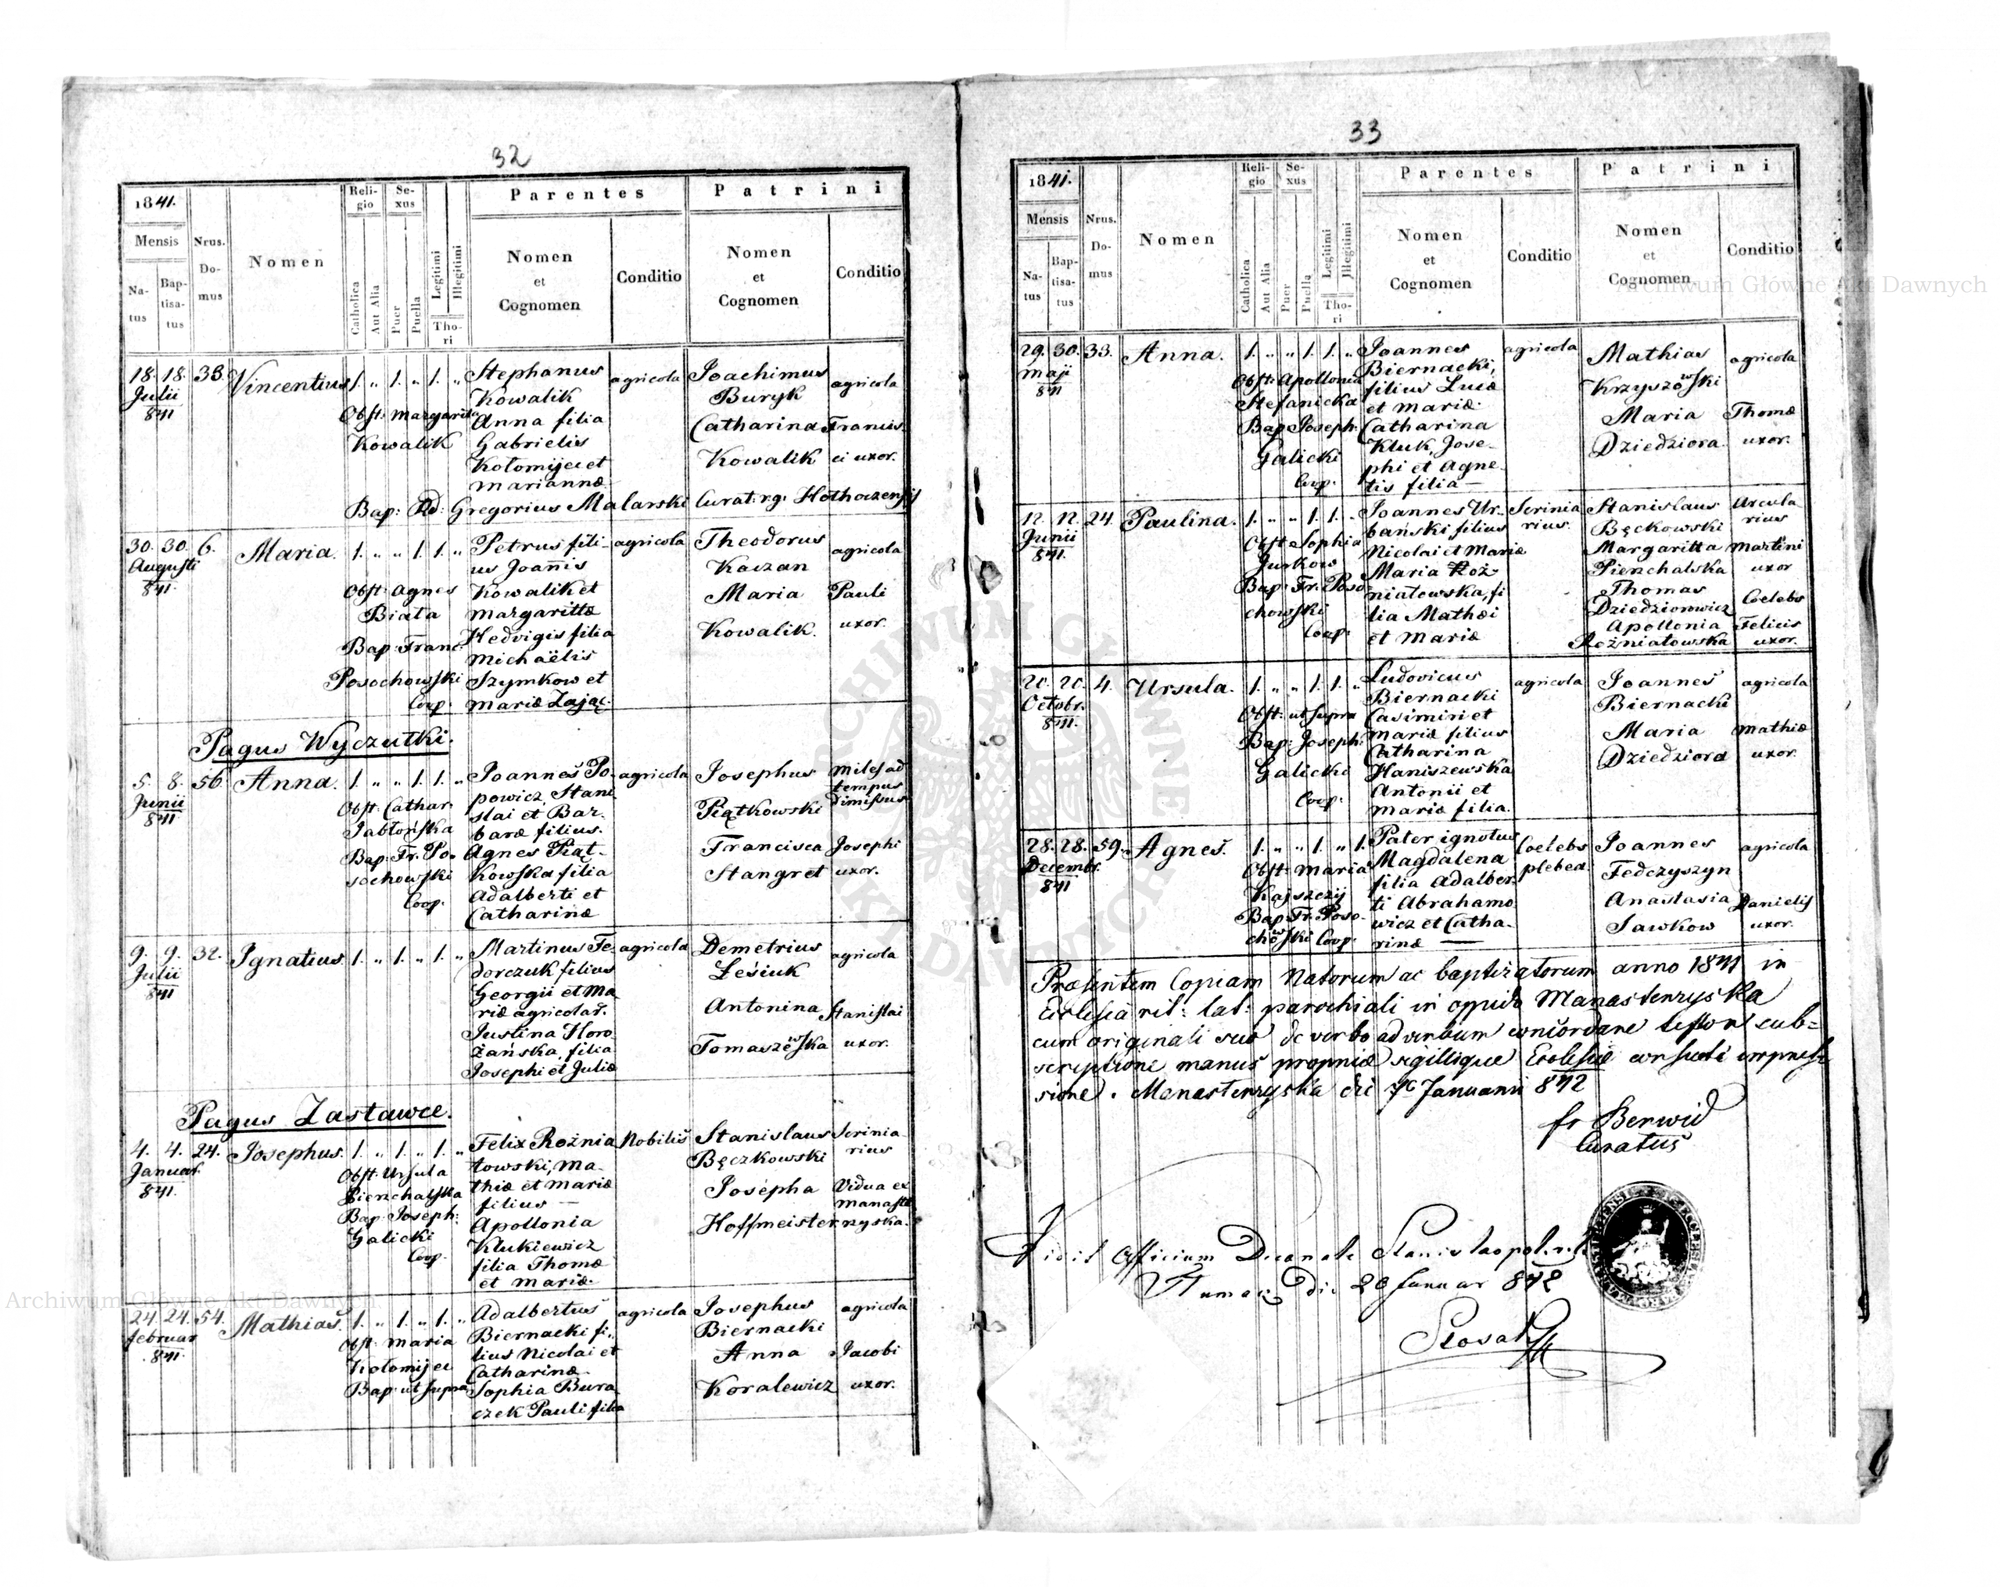 32
1841.
Mensis
Natus
Baptisatus
Nrus. Domus
Nomen
Religio
Catholica
Aut Alia
Sexus
Puer
Puella
Legitimi
Illegitimi
Thori
Parentes
Nomen et Cognomen
Conditio
Patrini
Nomen et Cognomen
Conditio
18. 18. 33. Vincentius 1. „ 1. „ 1. „
Julii
841
Obst: Margarita
Kowalik
Stephanus
Kowalik
Anna filia
Gabrielis
Kołomijec et
Mariannæ
agricola
Joachimus
Buryk
Catharina
Kowalik
agricola
Francis-
ci uxor.
Bap: Rd: Gregorius Malarski Curat: r.g. Hothoczensis
30. 30. 6. Maria. 1. „ „ 1. 1. „
Augusti
841.
Obst: Agnes
Biała
Bap: Franc:
Posochowski
Coop.
Petrus fili-
us Joannis
Kowalik et
Margarittæ
Hedvigis filia
Michaëlis
Szymkow et
Mariæ Zając.
agricola
Theodorus
Kaczan
Maria
Kowalik.
agricola
Pauli
uxor.
Pagus Wyczułki.
5. 8. 56. Anna. 1. „ „ 1. 1. „
Junii
841
Obst: Cathar.
Jabłońska
Bap: Fr: Po-
sochowski
Coop.
Joannes Po-
powicz, Stani-
slai et Bar-
baræ filius.
Agnes Piąt-
kowska filia
Adalberti et
Catharinæ
agricola
Josephus
Piątkowski
Francisca
Stangret
Miles ad
tempus
dimissus
Josephi
uxor.
9. 9. 32. Ignatius. 1. „ 1. „ 1. „
Julii
841
Martinus Fe-
dorczuk filius
Georgii et Ma-
riæ agricolar.
Justina Horo-
żańska, filia
Josephi et Juliæ
agricola
Demetrius
Łesiuk
Antonina
Tomaszewska
agricola
Stanislai
uxor.
Pagus Zastawce.
4. 4. 24. Josephus. 1. „ 1. „ 1. „
Januar.
841.
Obst: Ursula
Pienchalska
Bap: Joseph:
Galicki
Coop.
Felix Rożnia-
towski, Ma-
thiæ et Mariæ
filius —
Apollonia
Klukiewicz
filia Thomæ
et Mariæ.
Nobilis
Stanislaus
Bęczkowski
Josepha
Hoffmeister
Scrinia-
rius
Vidua ex
Manaste-
ryska.
24. 24. 54. Mathias. 1. „ 1. „ 1. „
Februar
841.
Obst: Maria
Kołomijec
Bap: ut supra
Adalbertus
Biernacki fi-
lius Nicolai et
Catharinæ
Sophia Bura-
czek Pauli filia
agricola
Josephus
Biernacki
Anna
Koralewicz
agricola
Jacobi
uxor.
33
1841.
Mensis
Natus
Baptisatus
Nrus. Domus
Nomen
Religio
Catholica
Aut Alia
Sexus
Puer
Puella
Legitimi
Illegitimi
Thori
Parentes
Nomen et Cognomen
Conditio
Patrini
Nomen et Cognomen
Conditio
29. 30. 33. Anna. 1. „ „ 1. 1. „
Maji
841
Obst: Apollonia
Stefanicka
Bap: Joseph:
Galicki
Coop.
Joannes
Biernacki,
filius Lucæ
et Mariæ.
Catharina
Kluk, Jose-
phi et Agne-
tis filia —
agricola
Mathias
Krzyszowski
Maria
Dziedziora.
agricola
Thomæ
uxor.
12. 12. 24. Paulina. 1. „ „ 1. 1. „
Junii
841.
Obst: Sophia
Jurkow
Bap: Fr: Poso-
chowski
Coop:
Joannes Ur-
bański filius
Nicolai et Mariæ
Maria Roż-
niatowska, fi-
lia Mathæi
et Mariæ
Scrinia-
rius.
Stanislaus
Bęckowski
Margaritta
Pienchalska
Thomas
Dziedziorowicz
Apollonia
Rożniatowska
Martini
uxor
Coelebs
Felicis
uxor.
20. 20. 4. Ursula. 1. „ „ 1. 1. „
Octobr.
841.
Obst: ut supra
Bap: Joseph:
Galicki
Coop:
Ludovicus
Biernacki
Casimiri et
Mariæ filius
Catharina
Haniszewska
Antonii et
Mariæ filia.
agricola
Joannes
Biernacki
Maria
Dziedziora
agricola
Mathiæ
uxor.
28. 28. 59. Agnes. 1. „ „ 1. „ 1.
Decembr.
841
Obst: Maria
Kajszczij
Bap: Fr: Poso-
chowski Coop.
Pater ignotus
Magdalena
filia Adalber-
ti Abrahamo-
wicz et Catha-
rinæ —
Coelebs
plebea.
Joannes
Fedczyszyn
Anastasia
Sawkow
agricola
Danielis
uxor.
Præsentem Copiam Natorum ac baptizatorum anno 1841 in
Ecclesia rit: lat: parochiali in oppido Manasterzyska
cum originali suo de verbo ad verbum concordare testor sub-
scriptione manus propriæ sigillique Ecclesiæ consueti impres-
sione. Monasterzyska die Januarii 842
fr Berwid
Curatus
Vidit Officium Decanale Stanislaopol.
die 20 Januar 842
Archiwum Główne Akt Dawnych
Archiwum Główne Akt Dawnych